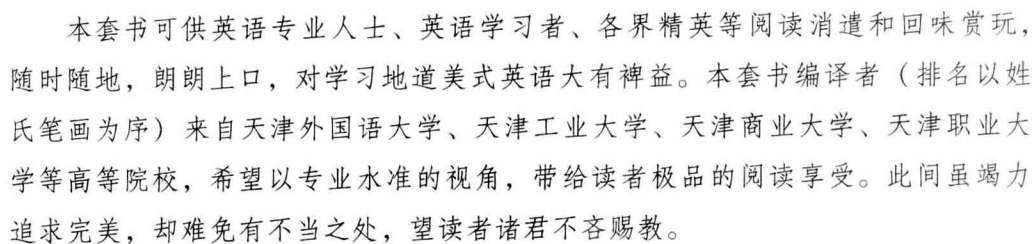 本套书可供英语专业人士、英语学习者、各界精英等阅读消遣和回味赏玩，
随时随地，朗朗上口，对学习地道美式英语大有裨益。本套书编译者（排名以姓
氏笔画为序）来自天津外国语大学、天津工业大学、天津商业大学、天津职业大
学等高等院校，希望以专业水准的视角，带给读者极品的阅读享受。此间虽竭力
追求完美，却难免有不当之处，望读者诸君不吝赐教。